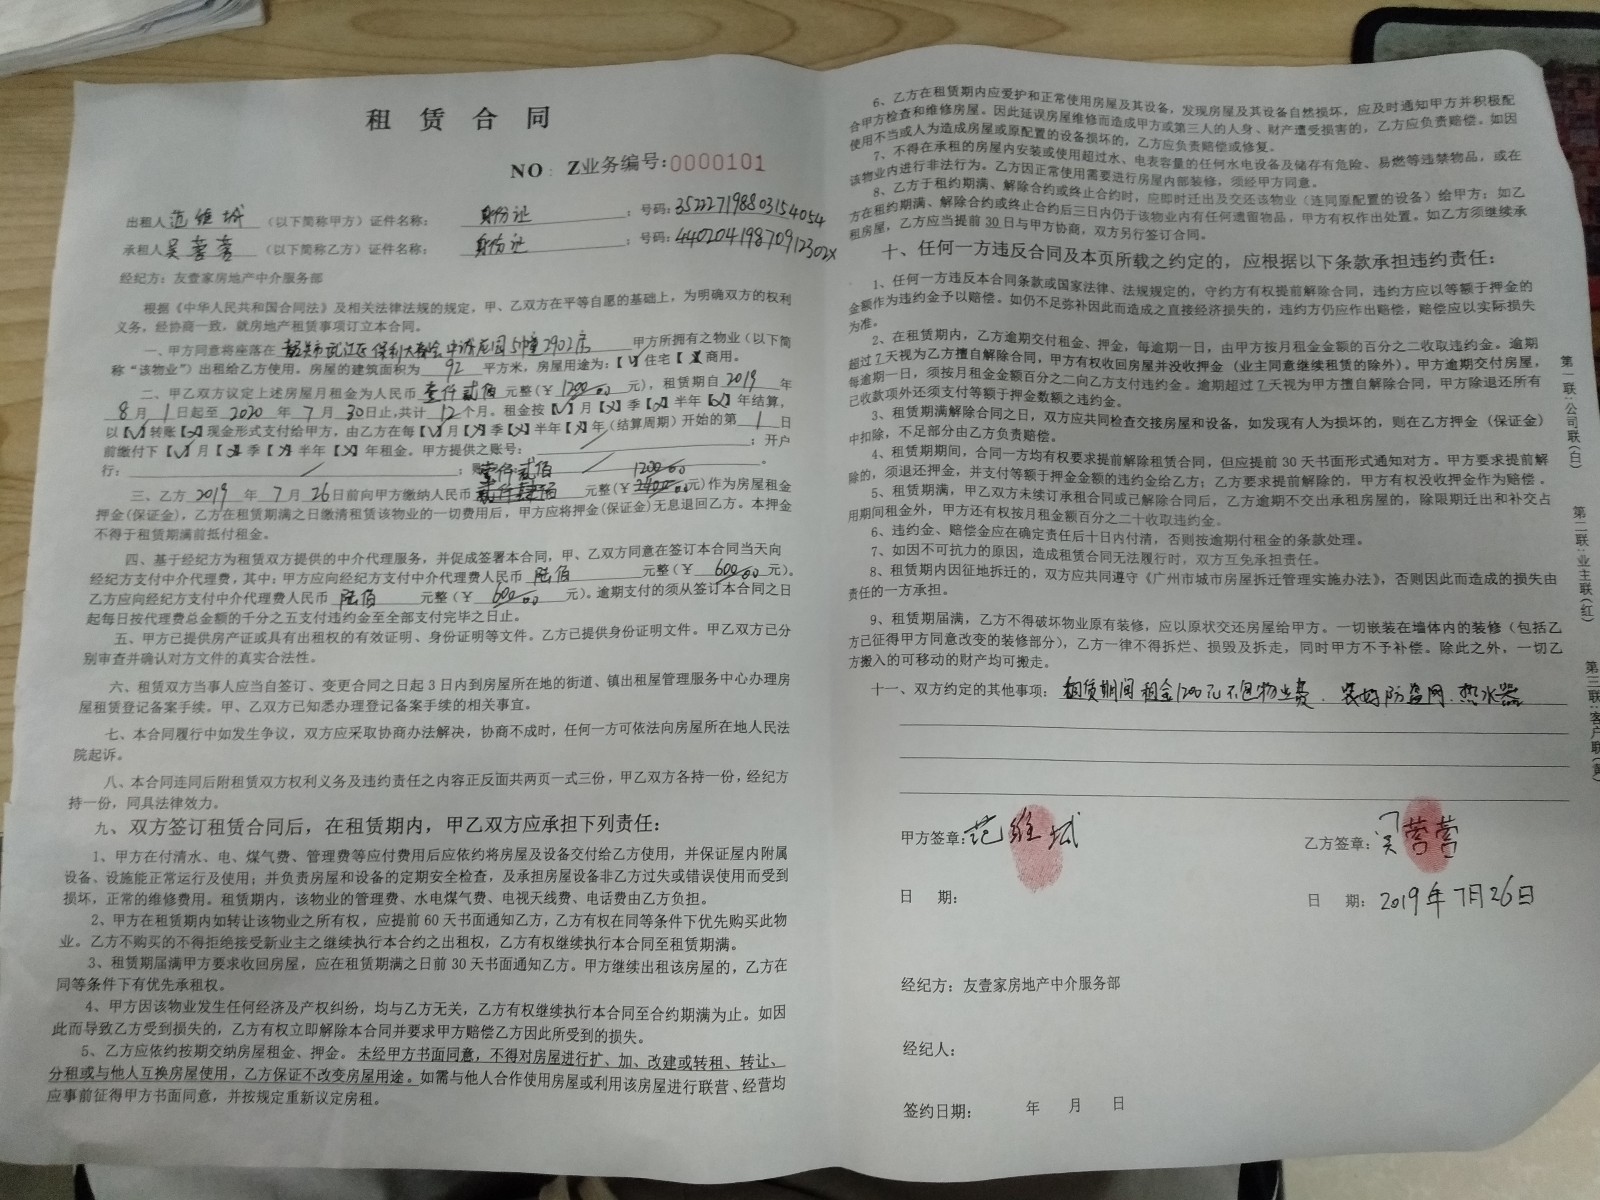 租 赁 合 同
NO: Z业务编号:0000101
出租人范维城（以下简称甲方）证件名称: 身份证 ; 号码: 352227198803154054
承租人吴营营（以下简称乙方）证件名称: 身份证 ; 号码: 44020419870912302X
经纪方: 友壹家房地产中介服务部
根据《中华人民共和国合同法》及相关法律法规的规定，甲、乙双方在平等自愿的基础上，为明确双方的权利
义务，经协商一致，就房地产租赁事项订立本合同。
一、甲方同意将座落在 韶关市武江区保利大都会中 园5幢2902房 甲方所拥有之物业（以下简
称“该物业”）出租给乙方使用。房屋的建筑面积为 92 平方米，房屋用途为:【√】住宅【X】商用。
二、甲乙双方议定上述房屋月租金为人民币 壹仟贰佰 元整(￥ 1200.00 元)，租赁期自 2019 年
8月 1日起至 2020 年 7 月 30日止,共计 12 个月。租金按【√】月【X】季【X】半年【X】年结算，
以【√】转账【X】现金形式支付给甲方，由乙方在每【√】月【X】季【X】半年【X】年（结算周期）开始的第 1 日
前缴付下【√】月【X】季【X】半年【X】年租金。甲方提供之账号: ; 开户
行: ; 账 。
壹仟贰佰 1200.00
三、乙方 2019 年 7 月 26日前向甲方缴纳人民币 贰仟肆佰 元整(￥ 2400.00元)作为房屋租金
押金(保证金)，乙方在租赁期满之日缴清租赁该物业的一切费用后，甲方应将押金(保证金)无息退回乙方。本押金
不得于租赁期满前抵付租金。
四、基于经纪方为租赁双方提供的中介代理服务，并促成签署本合同，甲、乙双方同意在签订本合同当天向
经纪方支付中介代理费,其中: 甲方应向经纪方支付中介代理费人民币 陆佰 元整(￥ 600.00 元)。
乙方应向经纪方支付中介代理费人民币 陆佰 元整(￥ 600.00 元)。逾期支付的须从签订本合同之日
起每日按代理费总金额的千分之五支付违约金至全部支付完毕之日止。
五、甲方已提供房产证或具有出租权的有效证明、身份证明等文件。乙方已提供身份证明文件。甲乙双方已分
别审查并确认对方文件的真实合法性。
六、租赁双方当事人应当自签订、变更合同之日起 3 日内到房屋所在地的街道、镇出租屋管理服务中心办理房
屋租赁登记备案手续。甲、乙双方已知悉办理登记备案手续的相关事宜。
七、本合同履行中如发生争议，双方应采取协商办法解决，协商不成时，任何一方可依法向房屋所在地人民法
院起诉。
八、本合同连同后附租赁双方权利义务及违约责任之内容正反面共两页一式三份，甲乙双方各持一份，经纪方
持一份，同具法律效力。
九、双方签订租赁合同后，在租赁期内，甲乙双方应承担下列责任:
1、甲方在付清水、电、煤气费、管理费等应付费用后应依约将房屋及设备交付给乙方使用，并保证屋内附属
设备、设施能正常运行及使用；并负责房屋和设备的定期安全检查，及承担房屋设备非乙方过失或错误使用而受到
损坏，正常的维修费用。租赁期内，该物业的管理费、水电煤气费、电视天线费、电话费由乙方负担。
2、甲方在租赁期内如转让该物业之所有权，应提前 60 天书面通知乙方，乙方有权在同等条件下优先购买此物
业。乙方不购买的不得拒绝接受新业主之继续执行本合约之出租权，乙方有权继续执行本合同至租赁期满。
3、租赁期届满甲方要求收回房屋，应在租赁期满之日前 30 天书面通知乙方。甲方继续出租该房屋的，乙方在
同等条件下有优先承租权。
4、甲方因该物业发生任何经济及产权纠纷，均与乙方无关，乙方有权继续执行本合同至合约期满为止。如因
此而导致乙方受到损失的，乙方有权立即解除本合同并要求甲方赔偿乙方因此所受到的损失。
5、乙方应依约按期交纳房屋租金、押金。未经甲方书面同意，不得对房屋进行扩、加、改建或转租、转让、
分租或与他人互换房屋使用，乙方保证不改变房屋用途。如需与他人合作使用房屋或利用该房屋进行联营、经营均
应事前征得甲方书面同意，并按规定重新议定房租。
6、乙方在租赁期内应爱护和正常使用房屋及其设备，发现房屋及其设备自然损坏，应及时通知甲方并积极配
合甲方检查和维修房屋。因此延误房屋维修而造成甲方或第三人的人身、财产遭受损害的，乙方应负责赔偿。如因
使用不当或人为造成房屋或原配置的设备损坏的，乙方应负责赔偿或修复。
7、不得在承租的房屋内安装或使用超过水、电表容量的任何水电设备及储存有危险、易燃等违禁物品，或在
该物业内进行非法行为。乙方因正常使用需要进行房屋内部装修，须经甲方同意。
8、乙方于租约期满、解除合约或终止合约时，应即时迁出及交还该物业（连同原配置的设备）给甲方；如乙
方在租约期满、解除合约或终止合约后三日内仍于该物业内有任何遗留物品，甲方有权作出处置。如乙方须继续承
租房屋，乙方应当提前 30 日与甲方协商，双方另行签订合同。
十、任何一方违反合同及本页所载之约定的，应根据以下条款承担违约责任:
1、任何一方违反本合同条款或国家法律、法规规定的，守约方有权提前解除合同，违约方应以等额于押金的
金额作为违约金予以赔偿。如仍不足弥补因此而造成之直接经济损失的，违约方仍应作出赔偿，赔偿应以实际损失
为准。
2、在租赁期内，乙方逾期交付租金、押金，每逾期一日，由甲方按月租金金额的百分之二收取违约金。逾期
超过 7 天视为乙方擅自解除合同，甲方有权收回房屋并没收押金（业主同意继续租赁的除外）。甲方逾期交付房屋，
每逾期一日，须按月租金金额百分之二向乙方支付违约金。逾期超过 7 天视为甲方擅自解除合同，甲方除退还所有
已收款项外还须支付等额于押金数额之违约金。
3、租赁期满解除合同之日，双方应共同检查交接房屋和设备，如发现有人为损坏的，则在乙方押金（保证金）
中扣除，不足部分由乙方负责赔偿。
4、租赁期期间，合同一方均有权要求提前解除租赁合同，但应提前 30 天书面形式通知对方。甲方要求提前解
除的，须退还押金，并支付等额于押金金额的违约金给乙方；乙方要求提前解除的，甲方有权没收押金作为赔偿。
5、租赁期满，甲乙双方未续订承租合同或已解除合同后，乙方逾期不交出承租房屋的，除限期迁出和补交占
用期间租金外，甲方还有权按月租金额百分之二十收取违约金。
6、违约金、赔偿金应在确定责任后十日内付清，否则按逾期付租金的条款处理。
7、如因不可抗力的原因，造成租赁合同无法履行时，双方互免承担责任。
8、租赁期内因征地拆迁的，双方应共同遵守《广州市城市房屋拆迁管理实施办法》，否则因此而造成的损失由
责任的一方承担。
9、租赁期届满，乙方不得破坏物业原有装修，应以原状交还房屋给甲方。一切嵌装在墙体内的装修（包括乙
方已征得甲方同意改变的装修部分），乙方一律不得拆烂、损毁及拆走，同时甲方不予补偿。除此之外，一切乙
方搬入的可移动的财产均可搬走。
十一、双方约定的其他事项: 租赁期间租金1200元不包物业费. 装好防盗网.热水器
甲方签章: 范维城
乙方签章: 吴营营
日 期:
日 期: 2019年7月26日
经纪方: 友壹家房地产中介服务部
经纪人:
签约日期: 年 月 日
第一联:公司联(白)
第二联:业主联(红)
第三联:客户联(黄)